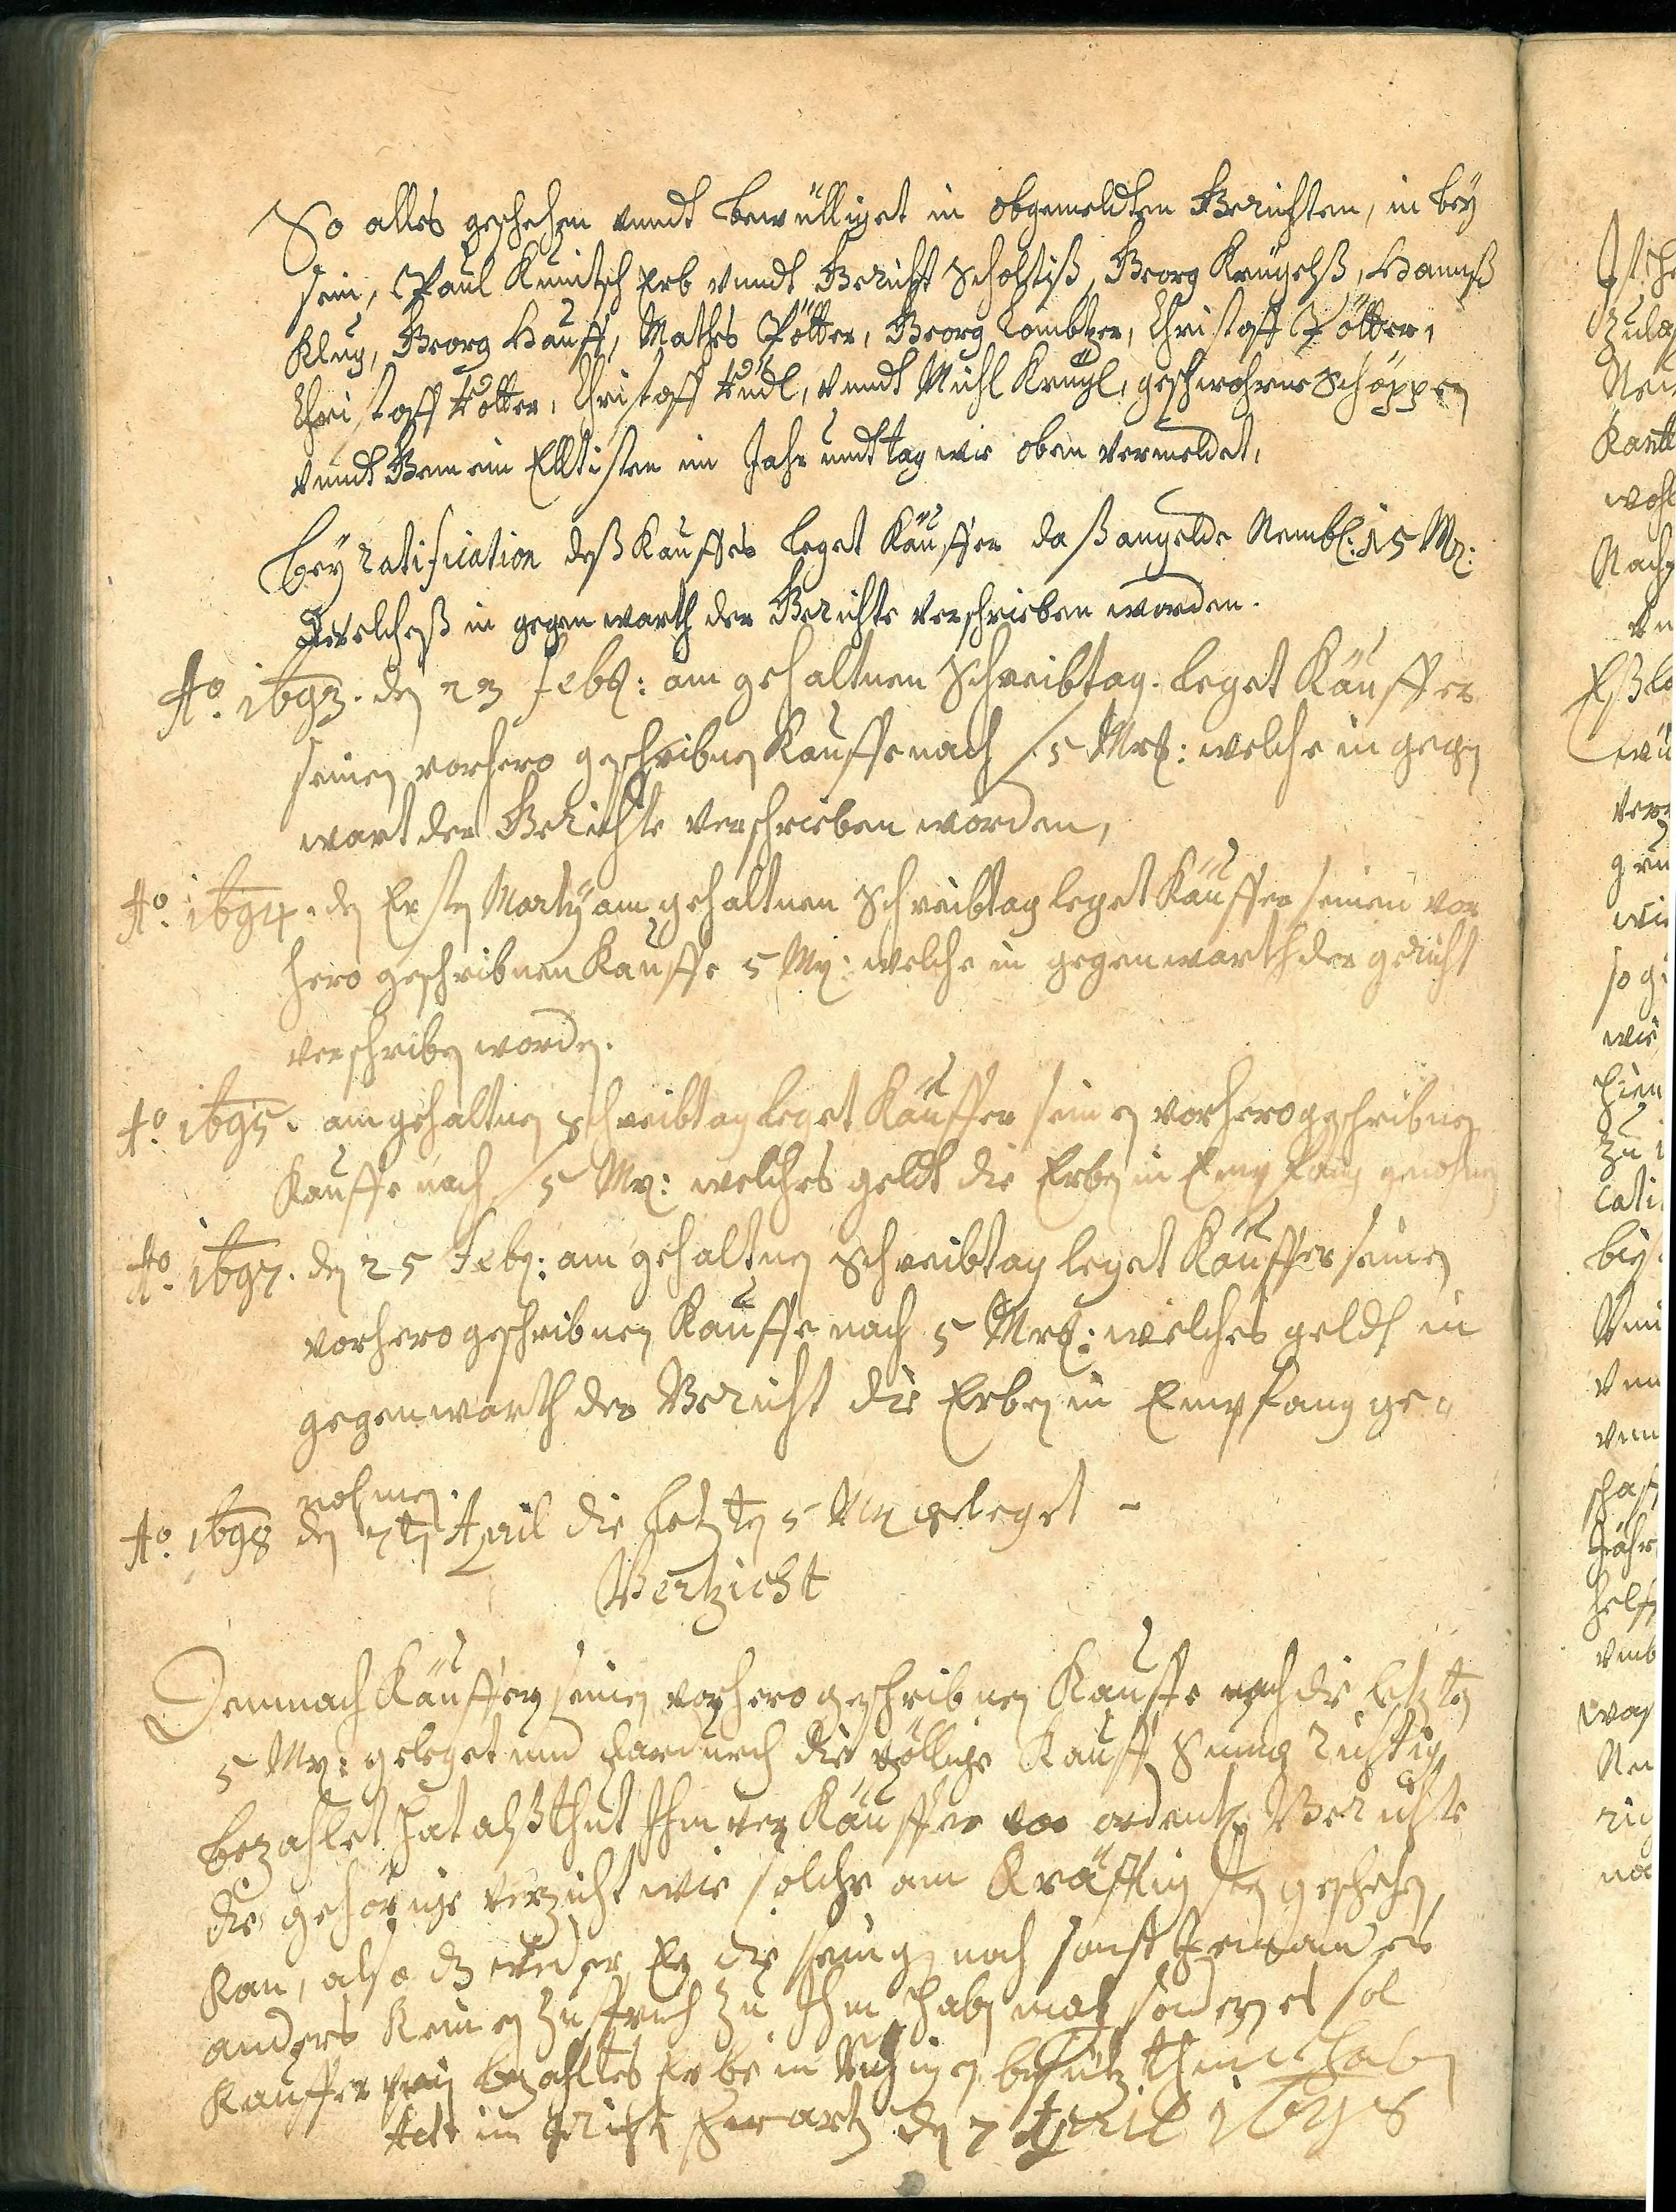 So alles geschehen vnndt bewülliget in obgemeldten Gerichten, in bey
sein, Paul Kunitsch Erb vnndt Gericht Scholtiß, Georg Krügelß, Hannß
Klug, Georg Hauff, Mathes Pötter, Georg Lombtzer, Christoff Pötter,
Christoff Pötter, Christoff Rudl, vnndt Michl Krügl, geschwohrne Schöppen
vnndt Gemein Elltisten im Jahr undt tag wie oben vermeldet,
Bey ratification deß Kauffes leget Käuffer daß angelde Nembl: 15 Mr:
Welcheß in gegenwarth der Gerichte verschrieben worden.
Ao. 1693. den 23 Feb: am gehaltnen Schreibtag. leget Käuffer
seinen vorhero geschribnen Kauffe nach / 5 Mrk: welche in gegen
wart der Gerichte verschrieben worden,
Ao. 1694. den Ersten Marty am gehaltnen Schreibtag leget Käuffer seinen vor
hero geschribnen Kauffe 5 Mr: welche in gegenwarth der gericht
verschriben worden.
Ao. 1695. am gehaltnen Schreibtag leget Käuffer seinen vorhero geschribnen
Kauffe nach / 5 Mr: welches geldt die Erben in Empfang genohmen
Ao. 1697. den 25 Feb: am gehaltnen Schreibtag leget Käuffer seinen
vorhero geschribnen Kauffe nach 5 Mrk: welches geldt in
gegenwarth der Gericht die Erben in Empfang ge-
nohmen.
Ao. 1698 den 7ten April die letzten 5 Mr geleget -
Vertzicht
Demnach Käuffer seinen vorhero geschribnen Kauffe nach die letzten
5 Mr: geleget und hardurch die völlige Kauff Summa Richtig
bezahlet hat alß thut Ihm verkäuffer vor ordentl: Gerichte
die gehörige verzicht wie solche am Kräfftigsten geschehen
kan, also dz weder Er die seinigen noch sonst Jemandes
anders keinen Zuspruch zu Ihm haben mag sondern es sol
Kauffer sein bezahltes Erbe in Ruhigen besitz haben
Act: im gericht den 7 April 1698